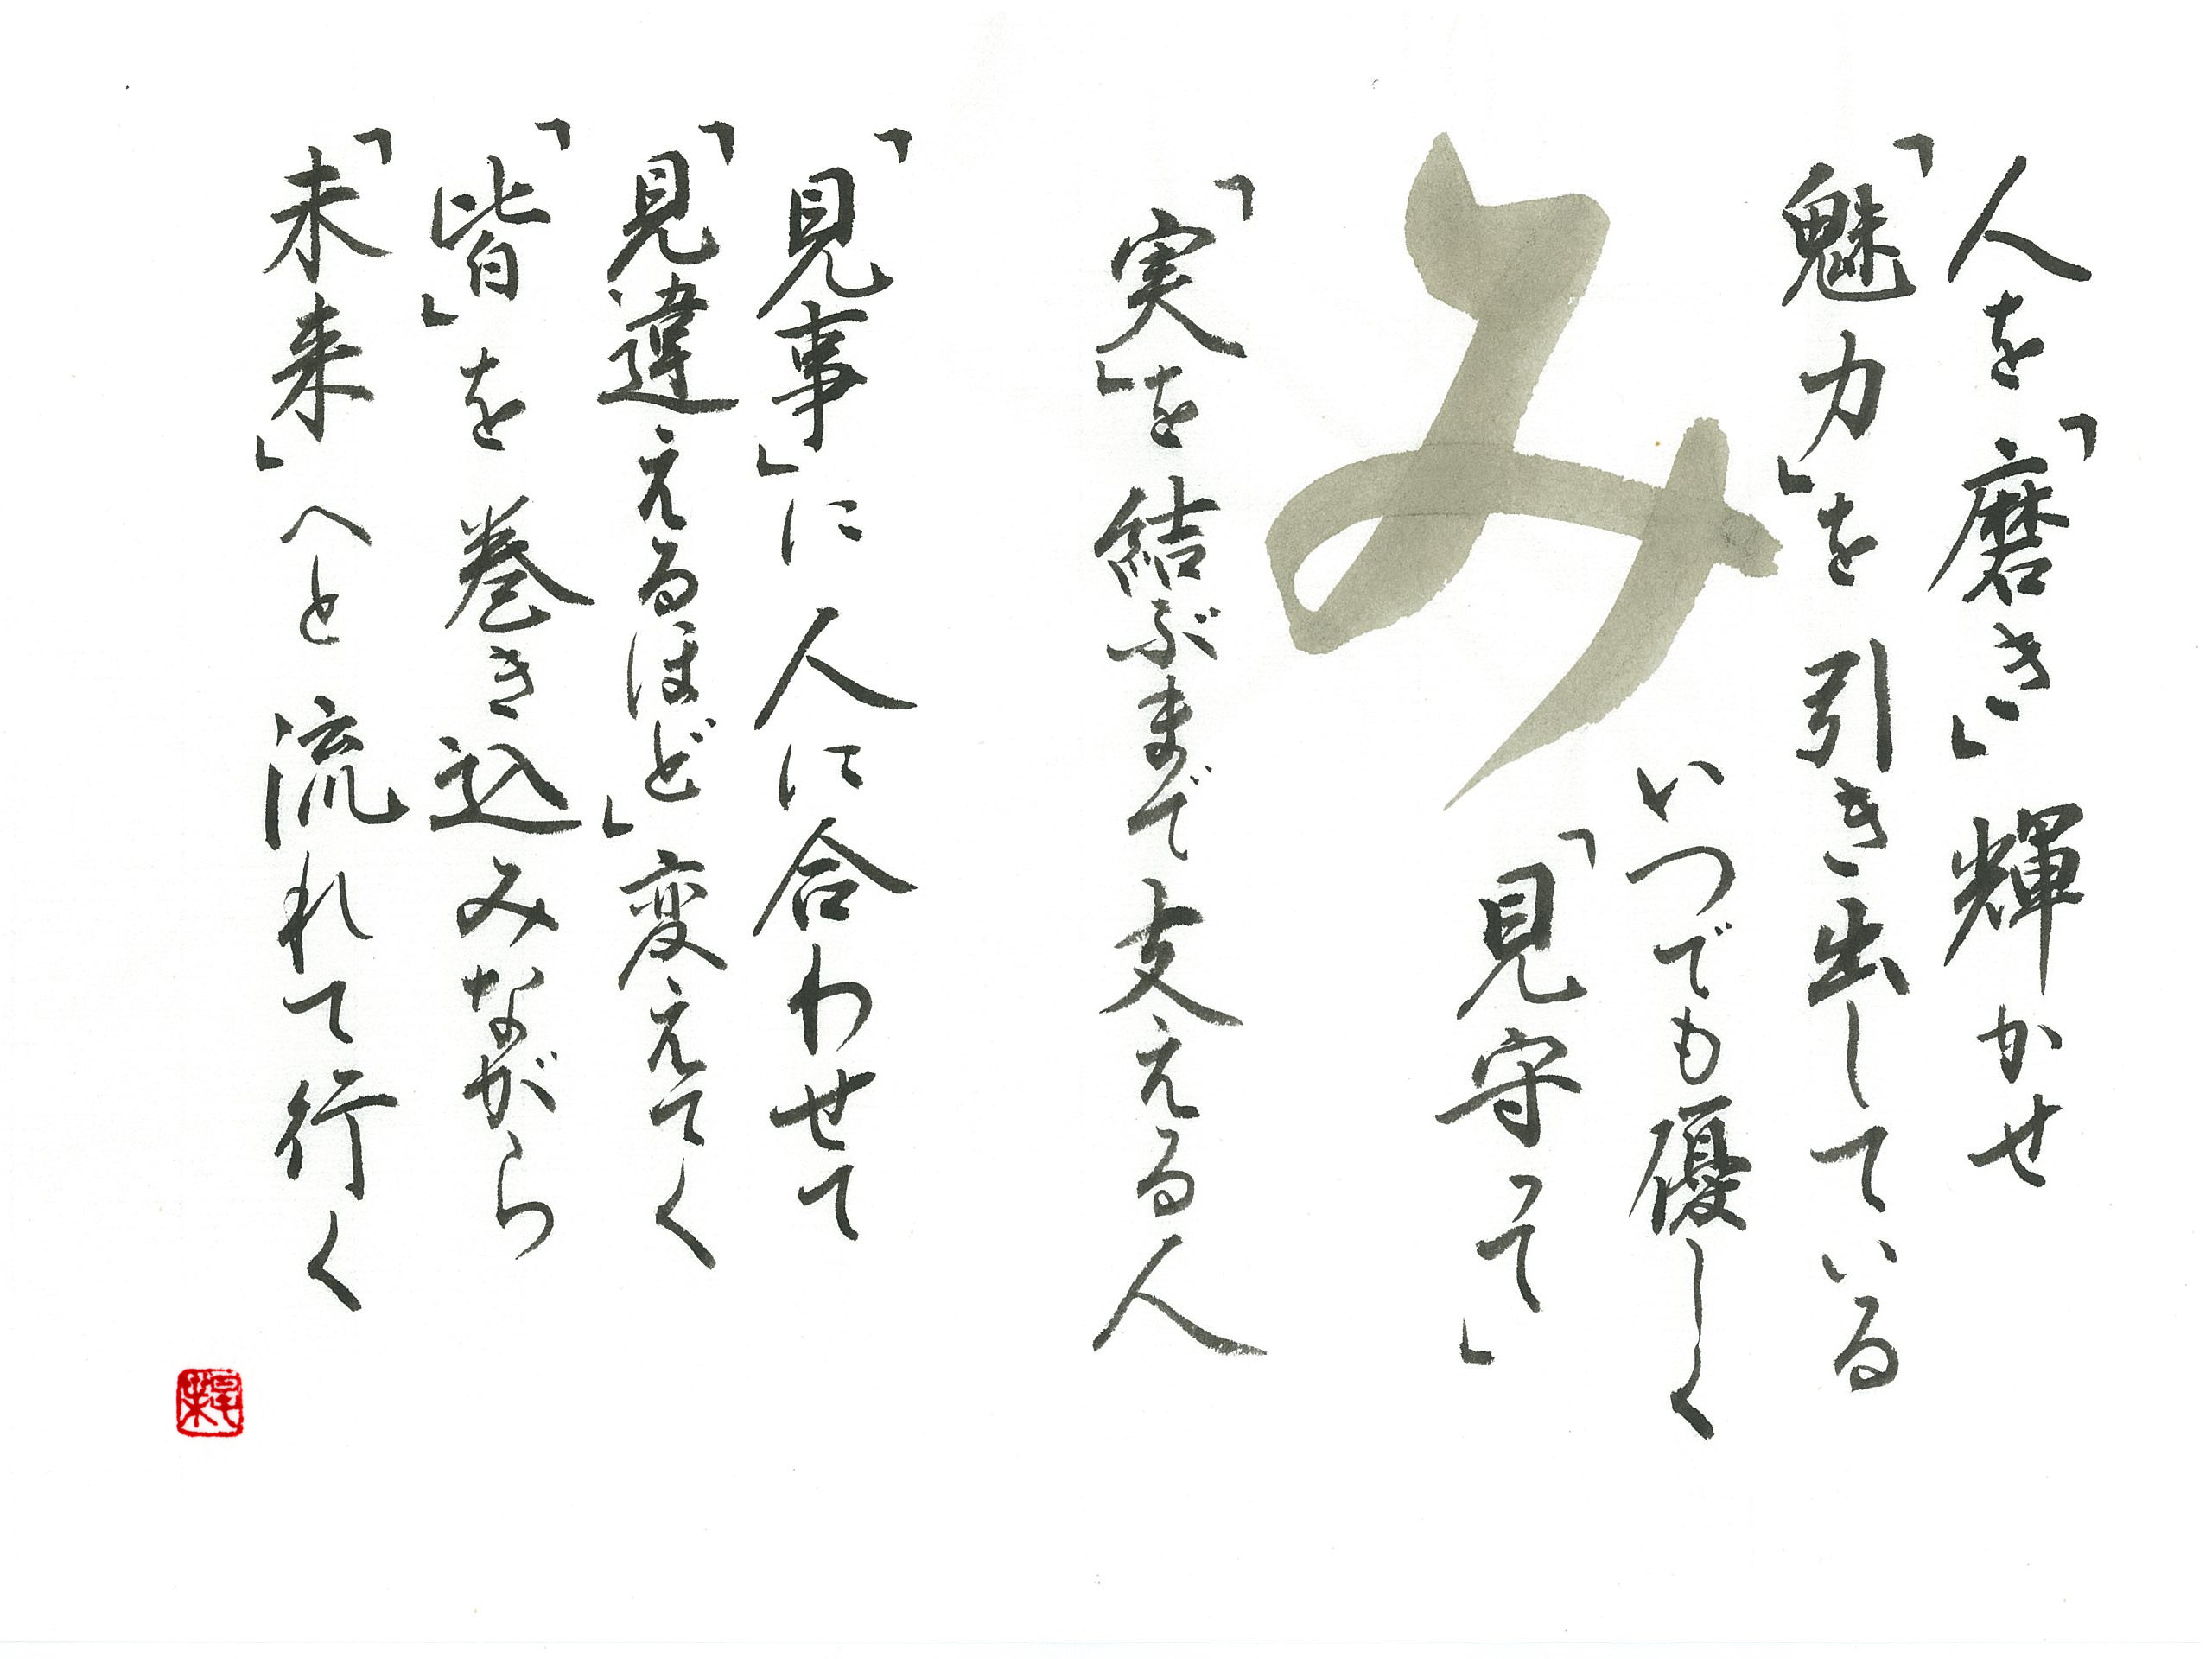 人を「磨き」輝かせ
「魅力」を引き出している
み
いつでも優しく
「見守って」
「実」を結ぶまで支える人
「見事」に人に合わせて
「見違えるほど」変えてく
「皆」を巻き込みながら
「未来」へと流れて行く